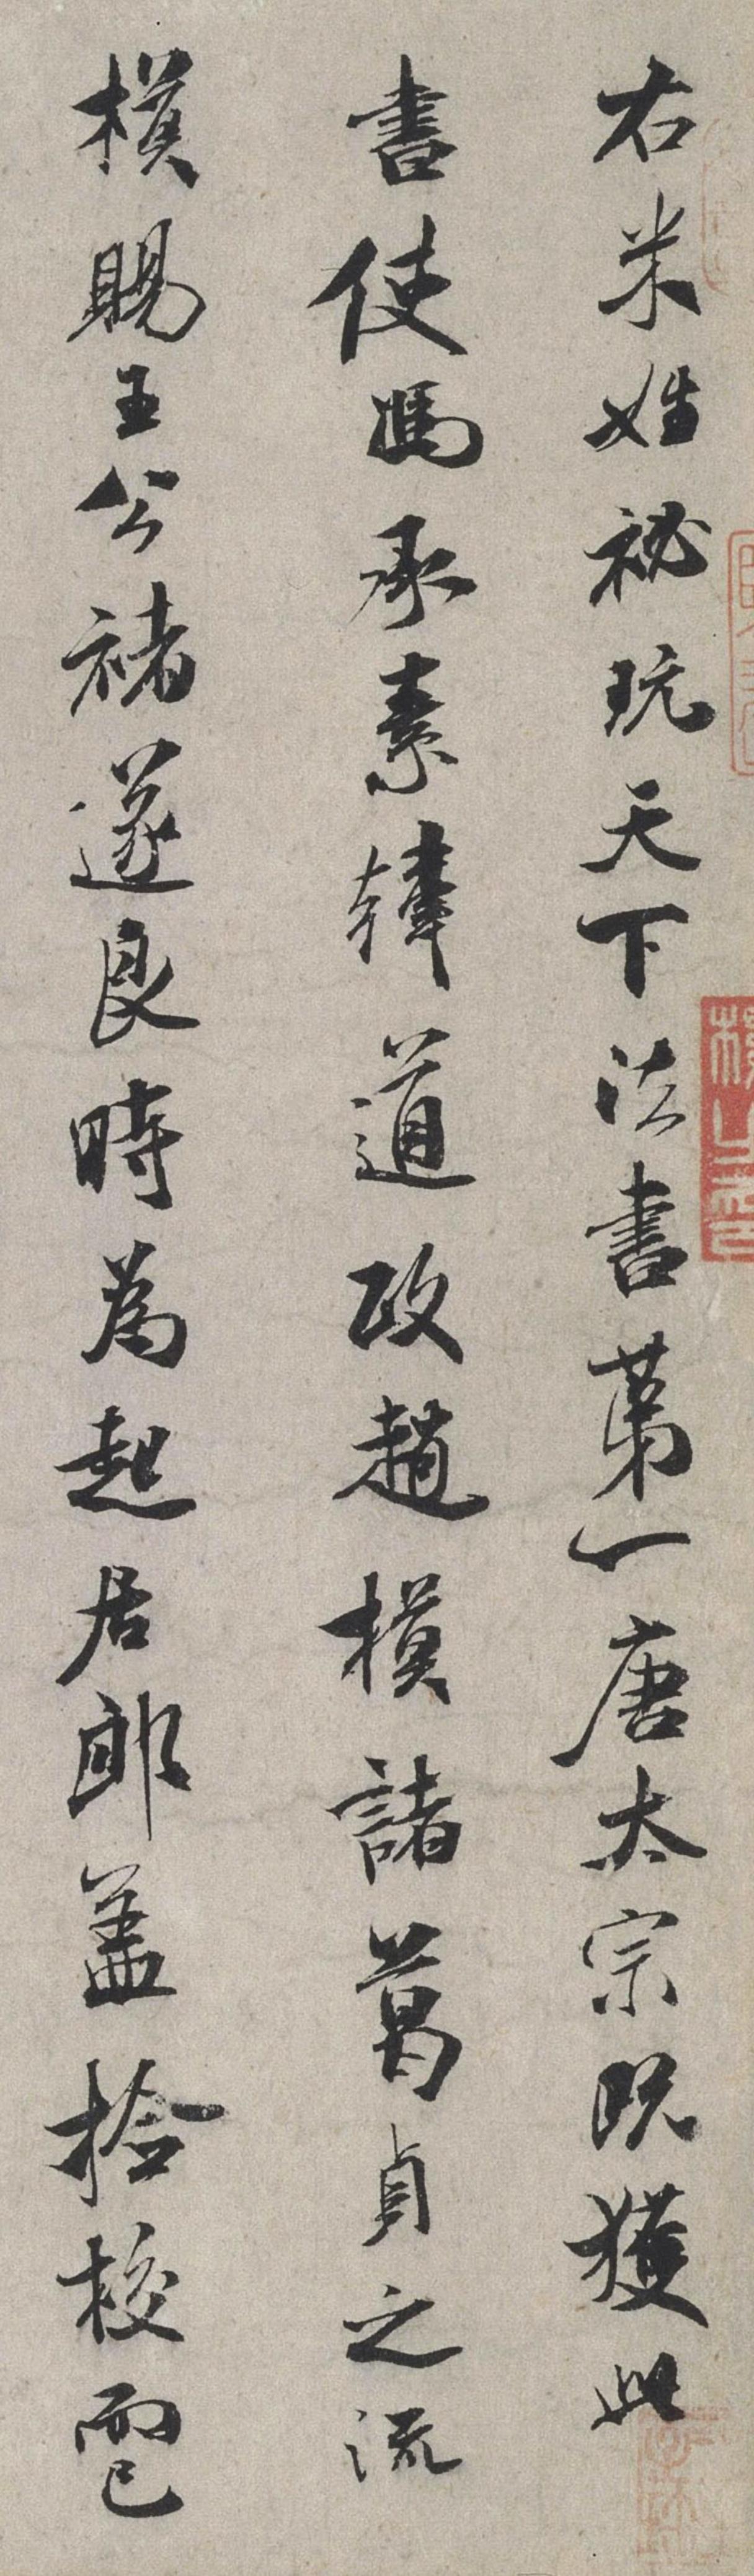 右米姓祕玩天下法書第一唐太宗既獲此
書使馮承素韓道政趙模諸葛貞之流
模賜王公褚遂良時為起居郎蓋撿校而已